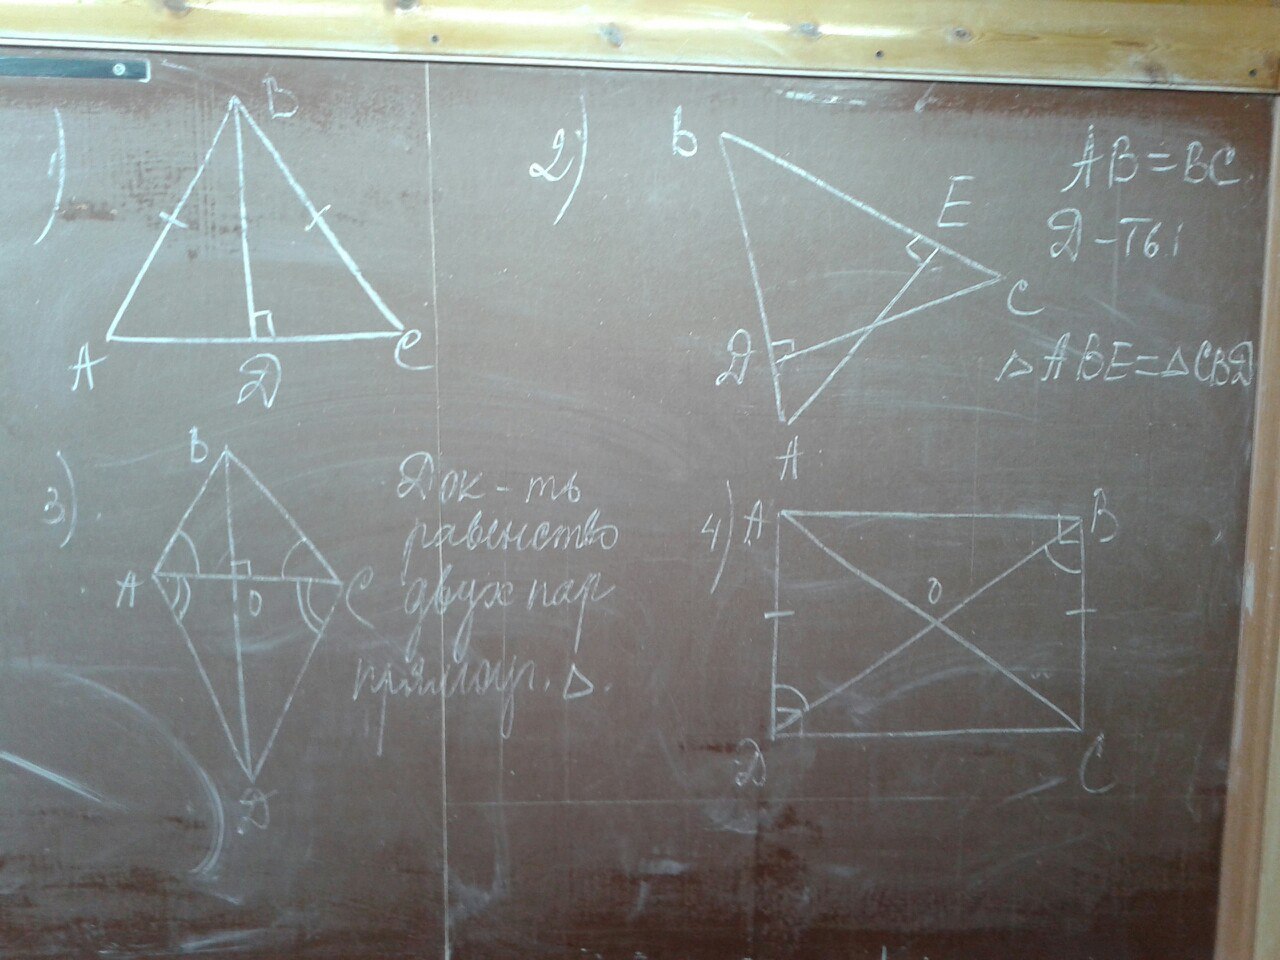 1)
B
A
D
C
2)
B
E
C
D
A
AB=BC
D-ть:
△ABE=△CBD
3)
B
A
O
C
D
Док-ть
равенство
двух пар
прямоуг. △.
4)
A
B
O
D
C